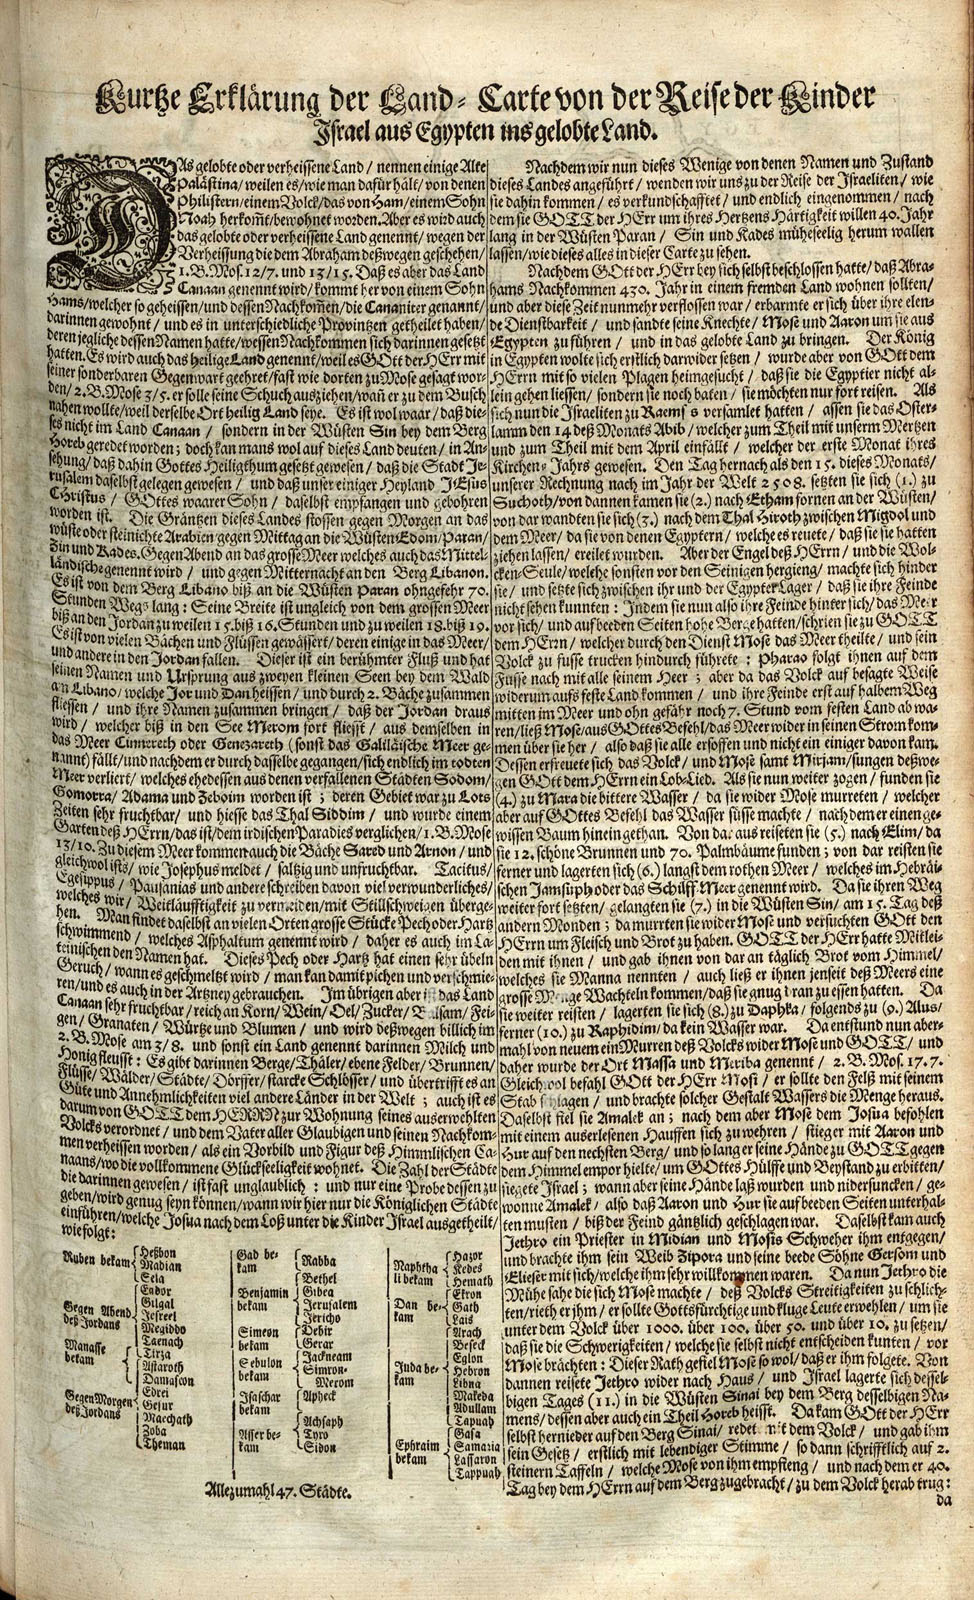 Kurtze Erklärung der Land-Carte von der Reise der Kinder
Israel aus Egypten ins gelobte Land.
DAs gelobte oder verheissene Land / nennen einige Alte
Palästina / weilen es / wie man dafür hält / von denen
Philistern / einem Volck / das von Ham / einem Sohn
Noah herkom̃t / bewohnet worden. Aber es wird auch
das gelobte oder verheissene Land genennt / wegen der
Verheissung die dem Abraham deßwegen geschehen /
1. B. Mos. 12/7. und 13/15. Daß es aber das Land
Canaan genennt wird / kom̃t her von einem Sohn
Hams / welcher so geheissen / und dessen Nachkom̃en / die Cananiter genannt /
darinnen gewohnt / und es in unterschiedliche Provintzen getheilt haben /
deren jegliche dessen Namen hatte / wessen Nachkommen sich darinnen gesetzt
hatten. Es wird auch das heilige Land genennt / weil es GOtt der HErr mit
seiner sonderbaren Gegenwart geehret / fast wie dorten zu Mose gesagt wor-
den / 2. B. Mose 3/5. er solle seine Schuch ausziehen / wañ er zu dem Busch
nahen wollte / weil derselbe Ort heilig Land seye. Es ist wol waar / daß die-
ses nicht im Land Canaan / sondern in der Wüsten Sin bey dem Berg
Horeb geredet worden ; doch kan mans wol auf dieses Land deuten / in An-
sehung / daß dahin Gottes Heiligthum gesetzt gewesen / daß die Stadt Je-
rusalem daselbst gelegen gewesen / und daß unser einiger Heyland JEsus
Christus / GOttes waarer Sohn / daselbst empfangen und gebohren
worden ist. Die Gräntzen dieses Landes stossen gegen Morgen an das
wüste oder steinichte Arabien gegen Mittag an die Wüsten Edom / Paran /
Zin und Kades. Gegen Abend an das grosse Meer welches auch das Mittel-
ländische genennt wird / und gegen Mitternacht an den Berg Libanon.
Es ist von dem Berg Libano biß an die Wüsten Paran ohngefehr 70.
Stunden Wegs lang : Seine Breite ist ungleich von dem grossen Meer
biß an den Jordan zu weilen 15. biß 16. Stunden und zu weilen 18. biß 19.
Es ist von vielen Bächen und Flüssen gewässert / deren einige in das Meer /
und andere in den Jordan fallen. Dieser ist ein berühmter Fluß und hat
seinen Namen und Ursprung aus zweyen kleinen Seen bey dem Wald
an Libano / welche Jor und Dan heissen / und durch 2. Bäche zusammen
fliessen / und ihre Namen zusammen bringen / daß der Jordan draus
wird / welcher biß in den See Merom fort fliesst / aus demselben in
das Meer Cinnereth oder Genezareth (sonst das Galiläische Meer ge-
nannt) fällt / und nachdem er durch dasselbe gegangen / sich endlich im todten
Meer verliert / welches ehedessen aus denen verfallenen Städten Sodom /
Gomorra / Adama und Zeboim worden ist ; deren Gebiet war zu Lots
Zeiten sehr fruchtbar / und hiesse das Thal Siddim / und wurde einem
Garten deß HErrn / das ist / dem irdischen Paradies verglichen / 1. B. Mose
13/10. Zu diesem Meer kommen auch die Bäche Sared und Arnon / und
gleichwol ists / wie Josephus meldet / saltzig und unfruchtbar. Tacitus /
Egesippus / Pausanias und andere schreiben davon viel verwunderliches /
welches wir / Weitläufftigkeit zu vermeiden / mit Stillschweigen überge-
hen. Man findet daselbst an vielen Orten grosse Stücke Pech oder Hartz
schwimmend / welches Asphaltum genennt wird / daher es auch im La-
teinischen den Namen hat. Dieses Pech oder Hartz hat einen sehr übeln
Geruch / wann es geschmeltzt wird / man kan damit pichen und verschmie-
ren / und es auch in der Artzney gebrauchen. Im übrigen aber ist das Land
Canaan sehr fruchtbar / reich an Korn / Wein / Oel / Zucker / Balsam / Fei-
gen / Granaten / Würtze und Blumen / und wird deßwegen billich im
2. B. Mose am 3/8. und sonst ein Land genennt darinnen Milch und
Honig fleusst : Es gibt darinnen Berge / Thäler / ebene Felder / Brunnen /
Flüsse / Wälder / Städte / Dörffer / starcke Schlösser / und übertrifft es an
Güte und Annehmlichkeiten viel andere Länder in der Welt ; auch ist es
darum von GOTT dem HERRN zur Wohnung seines auserwehlten
Volcks verordnet / und dem Vater aller Glaubigen und seinen Nachkom-
men verheissen worden / als ein Vorbild und Figur deß Himmlischen Ca-
naans / wo die vollkommene Glückseeligkeit wohnet. Die Zahl der Städte
die darinnen gewesen / ist fast unglaublich : und nur eine Probe dessen zu
geben / wird genug seyn können / wann wir hier nur die Königlichen Städte
einführen / welche Josua nach dem Loß unter die Kinder Israel ausgetheilt /
wie folgt :
Ruben bekam
Heßbon
Madian
Sela
Gegen Abend
deß Jordans
Eador
Gilgal
Jesreel
Megiddo
Taenach
Tirza
Manasse
bekam
Gegen Morgen
deß Jordans
Astaroth
Damascon
Edrei
Gesur
Maechath
Zoba
Theman
Gad be-
kam
Rabba
Benjamin
bekam
Bethel
Gibea
Jerusalem
Jericho
Simeon
bekam
Debir
Gerar
Sebulon
bekam
Jackneam
Simron-
Merom
Isaschar
bekam
Apheck
Asser be-
kam
Achsaph
Tyro
Sidon
Naphtha
li bekam
Hazor
Kedes
Hemath
Dan be-
kam
Ekron
Gath
Lais
Juda be-
kam
Arach
Beseck
Eglon
Hebron
Libna
Makeda
Adullam
Tapuah
Ephraim
bekam
Gasa
Samaria
Lassaron
Tappuah
Alle zumahl 47. Städte.
Nachdem wir nun dieses Wenige von denen Namen und Zustand
dieses Landes angeführt / wenden wir uns zu der Reise der Israeliten / wie
sie dahin kommen / es verkundschafftet / und endlich eingenommen / nach
dem sie GOTT der HErr um ihres Hertzens Härtigkeit willen 40. Jahr
lang in der Wüsten Paran / Sin und Kades müheseelig herum wallen
lassen / wie dieses alles in dieser Carte zu sehen.
Nachdem GOtt der HErr bey sich selbst beschlossen hatte / daß Abra-
hams Nachkommen 430. Jahr in einem fremden Land wohnen sollten /
und aber diese Zeit nunmehr verflossen war / erbarmte er sich über ihre elen-
de Dienstbarkeit / und sandte seine Knechte / Mose und Aaron um sie aus
Egypten zu führen / und in das gelobte Land zu bringen. Der König
in Egypten wolte sich erstlich darwider setzen / wurde aber von GOtt dem
HErrn mit so vielen Plagen heimgesucht / daß sie die Egyptier nicht al-
lein gehen liessen / sondern sie noch baten / sie möchten nur fort reisen. Als
sich nun die Israeliten zu Raemses versamlet hatten / assen sie das Oster-
lamm den 14 deß Monats Abib / welcher zum Theil mit unserm Mertzen
und zum Theil mit dem April einfällt / welcher der erste Monat ihres
Kirchen-Jahrs gewesen. Den Tag hernach als den 15. dieses Monats /
unserer Rechnung nach im Jahr der Welt 2508. setzten sie sich (1.) zu
Suchoth / von dannen kamen sie (2.) nach Etham fornen an der Wüsten /
von dar wandten sie sich (3.) nach dem Thal Hiroth zwischen Migdol und
dem Meer / da sie von denen Egyptern / welche es reuete / daß sie sie hatten
ziehen lassen / ereilet wurden. Aber der Engel deß HErrn / und die Wol-
cken-Seule / welche sonsten vor den Seinigen hergieng / machte sich hinder
sie / und setzte sich zwischen ihr und der Egypter Läger / daß sie ihre Feinde
nicht sehen kunnten : Indem sie nun also ihre Feinde hinter sich / das Meer
vor sich / und auf beeden Seiten hohe Berge hatten / schrien sie zu GOTT
dem HErrn / welcher durch den Dienst Mose das Meer theilte / und sein
Volck zu fusse trucken hindurch führete : Pharao folgt ihnen auf dem
Fusse nach mit alle seinem Heer ; aber da das Volck auf besagte Weise
widerum aufs feste Land kommen / und ihre Feinde erst auf halbem Weg
mitten im Meer und ohn gefähr noch 7. Stund vom festen Land ab wa-
ren / ließ Mose / aus GOttes Befehl / das Meer wider in seinen Strom kom-
men über sie her / also daß sie alle ersoffen und nicht ein einiger davon kam.
Dessen erfreuete sich das Volck / und Mose samt Mirjam / sungen deßwe-
gen GOtt dem HErrn ein Lob-Lied. Als sie nun weiter zogen / funden sie
(4.) zu Mara die bittere Wasser / da sie wider Mose murreten / welcher
aber auf GOttes Befehl das Wasser süsse machte / nach dem er einen ge-
wissen Baum hinein gethan. Von dar aus reiseten sie (5.) nach Elim / da
sie 12. schöne Brunnen und 70. Palmbäume funden ; von dar reisten sie
ferner und lagerten sich (6.) langst dem rothen Meer / welches im Hebräi-
schen Jamsuph oder das Schilff-Meer genennt wird. Da sie ihren Weg
weiter fort setzten / gelangten sie (7.) in die Wüsten Sin / am 15. Tag deß
andern Monden ; da murrten sie wider Mose und versuchten GOtt den
HErrn um Fleisch und Brot zu haben. GOTT der HErr hatte Mitlei-
den mit ihnen / und gab ihnen von dar an täglich Brot vom Himmel /
welches sie Manna nennten / auch ließ er ihnen jenseit deß Meers eine
grosse Menge Wachteln kommen / daß sie gnug dran zu essen hatten. Da
sie weiter reisten / lagerten sie sich (8.) zu Daphka / folgends zu (9.) Alus /
ferner (10.) zu Raphidim / da kein Wasser war. Da entstund nun aber-
mahl von neuem ein Murren deß Volcks wider Mose und GOTT / und
daher wurde der Ort Massa und Meriba genennt / 2. B. Mos. 17.7.
Gleichwol befahl GOtt der HErr Mosi / er sollte den Felß mit seinem
Stab schlagen / und brachte solcher Gestalt Wassers die Menge heraus.
Daselbst fiel sie Amalek an ; nach dem aber Mose dem Josua befohlen
mit einem auserlesenen Hauffen sich zu wehren / stieger mit Aaron und
Hur auf den nechsten Berg / und so lang er seine Hände zu GOTT gegen
dem Himmel empor hielte / um GOttes Hülffe und Beystand zu erbitten /
siegete Israel ; wann aber seine Hände laß wurden und nidersuncken / ge-
wonne Amalek / also daß Aaron und Hur sie auf beeden Seiten unterhal-
ten musten / biß der Feind gäntzlich geschlagen war. Daselbst kam auch
Jethro ein Priester in Midian und Mosis Schweher ihm entgegen /
und brachte ihm sein Weib Zipora und seine beede Söhne Gersom und
Elieser mit sich / welche ihm sehr willkommen waren. Da nun Jethro die
Mühe sahe die sich Mose machte / deß Volcks Streitigkeiten zu schlich-
ten / rieth er ihm / er sollte Gottsfürchtige und kluge Leute erwehlen / um sie
unter dem Volck über 1000. über 100. über 50. und über 10. zu setzen /
daß sie die Schwerigkeiten / welche sie selbst nicht entscheiden kunten / vor
Mose brächten : Dieser Rath gefiel Mose so wol / daß er ihm folgete. Von
dannen reisete Jethro wider nach Haus / und Israel lagerte sich dessel-
bigen Tages (11.) in die Wüsten Sinai bey dem Berg desselbigen Na-
mens / dessen aber auch ein Theil Horeb heisst. Da kam GOtt der HErr
selbst hernieder auf den Berg Sinai / redet mit dem Volck / und gab ihm
sein Gesetz / erstlich mit lebendiger Stimme / so dann schrifftlich auf 2.
steinern Taffeln / welche Mose von ihm empfieng / und nach dem er 40.
Tag bey dem HErrn auf dem Berg zugebracht / zu dem Volck herab trug :
da